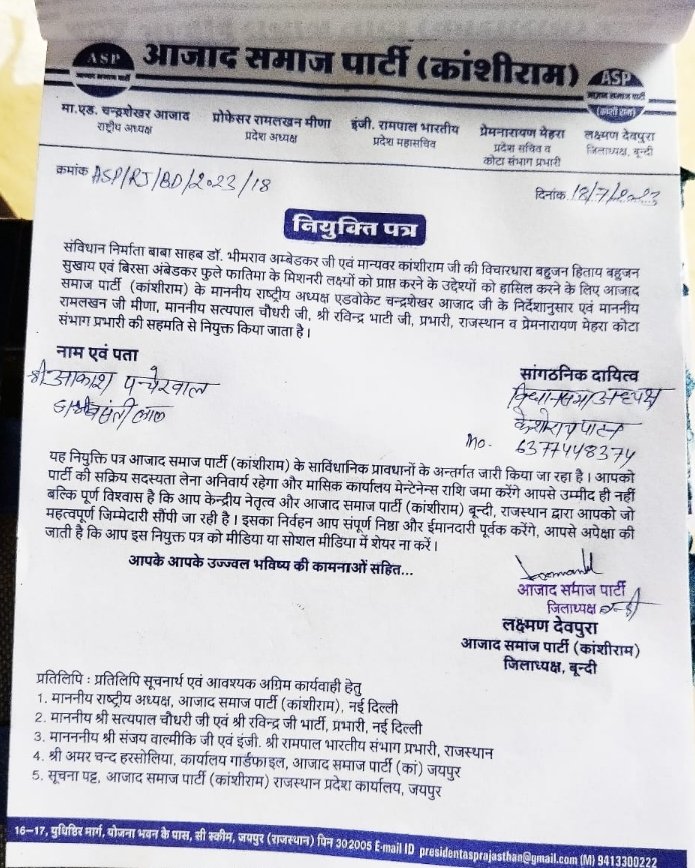 ASP
आजाद समाज पार्टी (कांशीराम)
ASP
आजाद समाज पार्टी
(कांशी राम)
मा.एड. चन्द्रशेखर आजाद
राष्ट्रीय अध्यक्ष
प्रोफेसर रामलखन मीणा
प्रदेश अध्यक्ष
इंजी. रामपाल भारतीय
प्रदेश महासचिव
प्रेमनारायण मेहरा
प्रदेश सचिव व
कोटा संभाग प्रभारी
लक्ष्मण देवपुरा
जिलाध्यक्ष, बून्दी
क्रमांक ASP/RJ/BD/2023/18
दिनांक 18/7/2023
नियुक्ति पत्र
संविधान निर्माता बाबा साहब डॉ. भीमराव अम्बेडकर जी एवं मान्यवर कांशीराम जी की विचारधारा बहुजन हिताय बहुजन
सुखाय एवं बिरसा अंबेडकर फुले फातिमा के मिशनरी लक्ष्यों को प्राप्त करने के उद्देश्यों को हासिल करने के लिए आजाद
समाज पार्टी (कांशीराम) के माननीय राष्ट्रीय अध्यक्ष एडवोकेट चन्द्रशेखर आजाद जी के निर्देशानुसार एवं माननीय
रामलखन जी मीणा, माननीय सत्यपाल चौधरी जी, श्री रविन्द्र भाटी जी, प्रभारी, राजस्थान व प्रेमनारायण मेहरा कोटा
संभाग प्रभारी की सहमति से नियुक्त किया जाता है।
नाम एवं पता
सांगठनिक दायित्व
श्री आकाश पन्चेरवाल
विधानसभा अध्यक्ष
बसंती लाल
केशोराय पाटन
Mo. 6377448374
यह नियुक्ति पत्र आजाद समाज पार्टी (कांशीराम) के सांविधानिक प्रावधानों के अन्तर्गत जारी किया जा रहा है। आपको
पार्टी की सक्रिय सदस्यता लेना अनिवार्य रहेगा और मासिक कार्यालय मेन्टेनेन्स राशि जमा करेंगे आपसे उम्मीद ही नहीं
बल्कि पूर्ण विश्वास है कि आप केन्द्रीय नेतृत्व और आजाद समाज पार्टी (कांशीराम) बून्दी, राजस्थान द्वारा आपको जो
महत्वपूर्ण जिम्मेदारी सौंपी जा रही है। इसका निर्वहन आप संपूर्ण निष्ठा और ईमानदारी पूर्वक करेंगे, आपसे अपेक्षा की
जाती है कि आप इस नियुक्त पत्र को मीडिया या सोशल मीडिया में शेयर ना करें।
आपके आपके उज्ज्वल भविष्य की कामनाओं सहित...
आजाद समाज पार्टी
जिलाध्यक्ष बून्दी
लक्ष्मण देवपुरा
आजाद समाज पार्टी (कांशीराम)
जिलाध्यक्ष, बून्दी
प्रतिलिपि : प्रतिलिपि सूचनार्थ एवं आवश्यक अग्रिम कार्यवाही हेतु
1. माननीय राष्ट्रीय अध्यक्ष, आजाद समाज पार्टी (कांशीराम), नई दिल्ली
2. माननीय श्री सत्यपाल चौधरी जी एवं श्री रविन्द्र जी भार्टी, प्रभारी, नई दिल्ली
3. मानननीय श्री संजय वाल्मीकि जी एवं इंजी. श्री रामपाल भारतीय संभाग प्रभारी, राजस्थान
4. श्री अमर चन्द हरसोलिया, कार्यालय गार्डफाइल, आजाद समाज पार्टी (कां) जयपुर
5. सूचना पट्ट, आजाद समाज पार्टी (कांशीराम) राजस्थान प्रदेश कार्यालय, जयपुर
16-17, युधिष्ठिर मार्ग, योजना भवन के पास, सी स्कीम, जयपुर (राजस्थान) पिन 302005 E-mail ID presidentasprajasthan@gmail.com (M) 9413300222